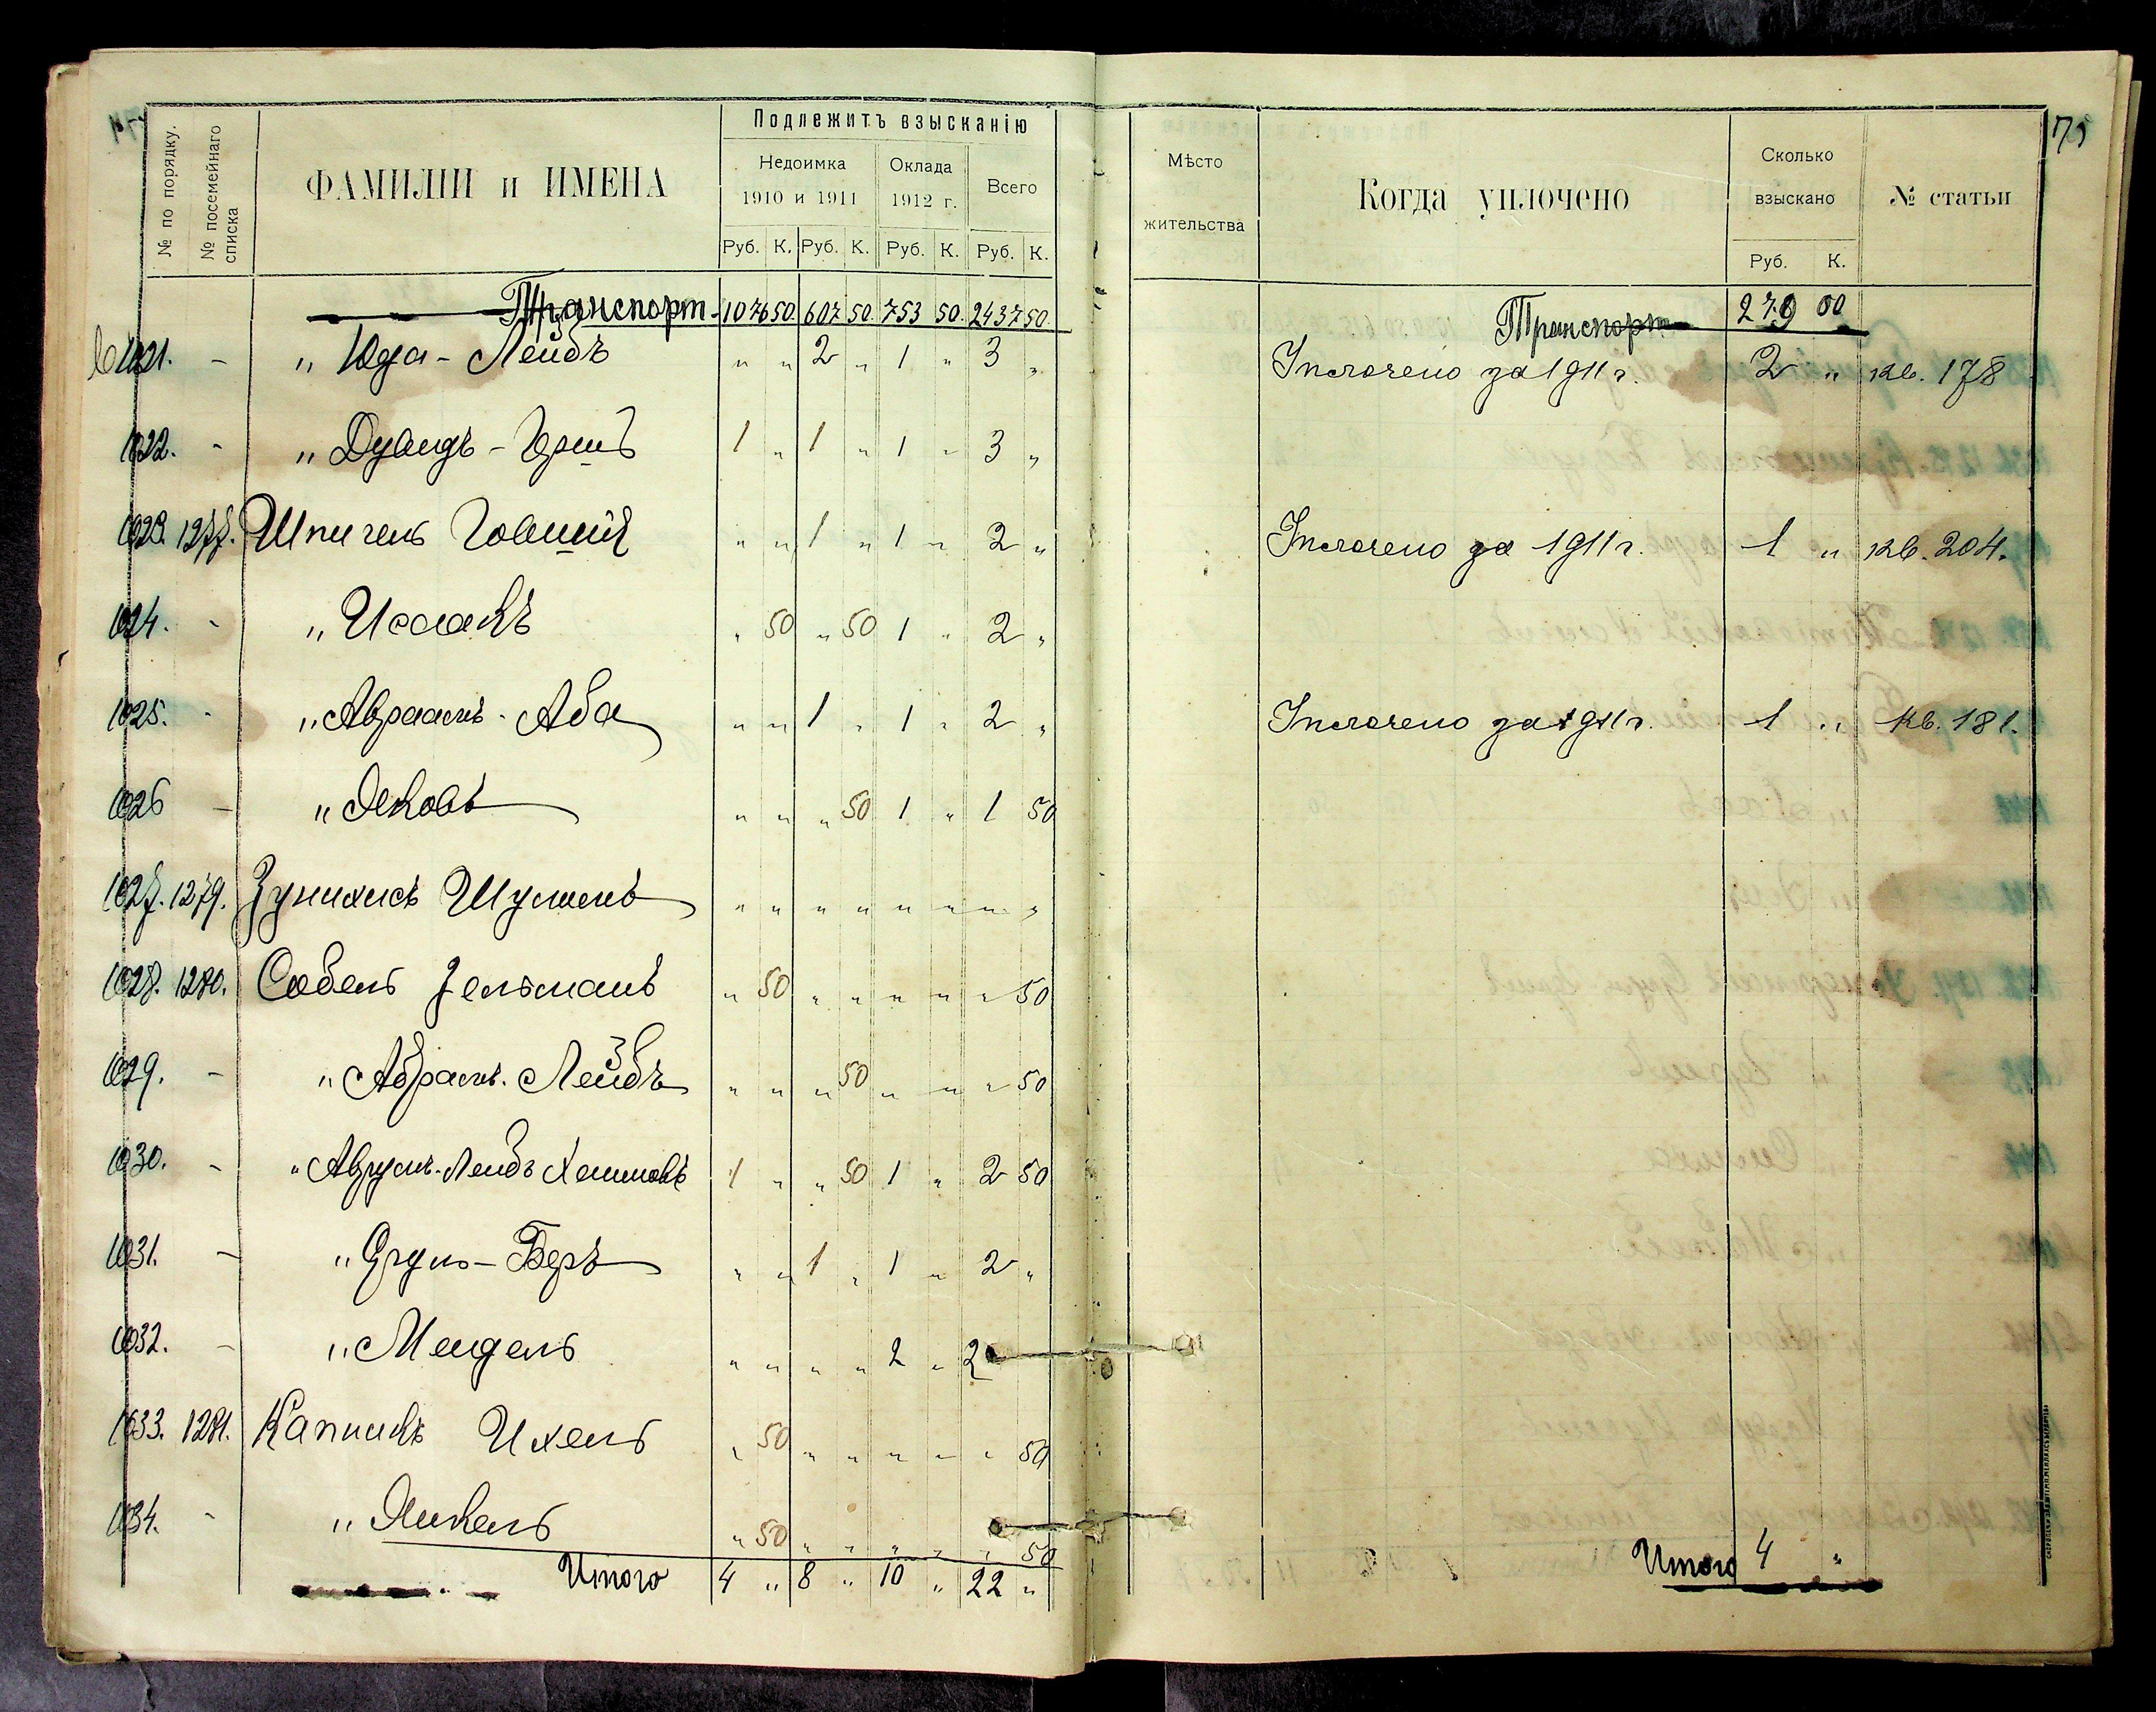 75
№ по порядку.
№ посемейнаго списка
ФАМИЛІИ и ИМЕНА
Подлежитъ взысканію
Недоимка 1910 и 1911
Оклада 1912 г.
Всего
Руб. К. Руб. К. Руб. К. Руб. К.
Мѣсто жительства
Когда уплочено
Сколько взыскано
Руб. К.
№ статьи
Транспорт 1076 50. 607 50. 753 50. 2437 50
Транспорт 279 00
1021. - „ Юда-Лейбъ „ „ 2 „ 1 „ 3 „ Уплочено за 1911 г. 2 „ кв. 178
1022. - „ Дувидъ-Гершъ 1 „ 1 „ 1 „ 3 „
1023. 1277. Шпигель Говшій „ „ 1 „ 1 „ 2 „ Уплочено за 1911 г. 1 „ кв. 204.
1024. - „ Исаакъ „ 50 „ 50 1 „ 2 „
1025. - „ Авраамъ-Аба „ „ 1 „ 1 „ 2 „ Уплочено за 1911 г. 1 „ кв. 181.
1026 - „ Яковъ „ „ „ 50 1 „ 1 50
1027. 1279. Шулимъ „ „ „ „ „ „ „ „
1028. 1280. Собель Зельманъ „ 50 „ „ „ „ „ 50
1029. - „ Абрамъ-Лейбъ „ „ „ 50 „ „ „ 50
1030. - „ Аврумъ-Лейбъ Хаимовъ 1 „ „ 50 1 „ 2 50
1031. - „ Сруль-Беръ „ „ 1 „ 1 „ 2 „
1032. - „ Мендель „ „ „ „ 2 „ 2
1033. 1281. Капникъ Ихель „ 50 „ „ „ „ „ 50
1034. - „ Янкель „ 50 „ „ „ „ „ 50
Итого 4 „ 8 „ 10 „ 22 „
Итого 4 „